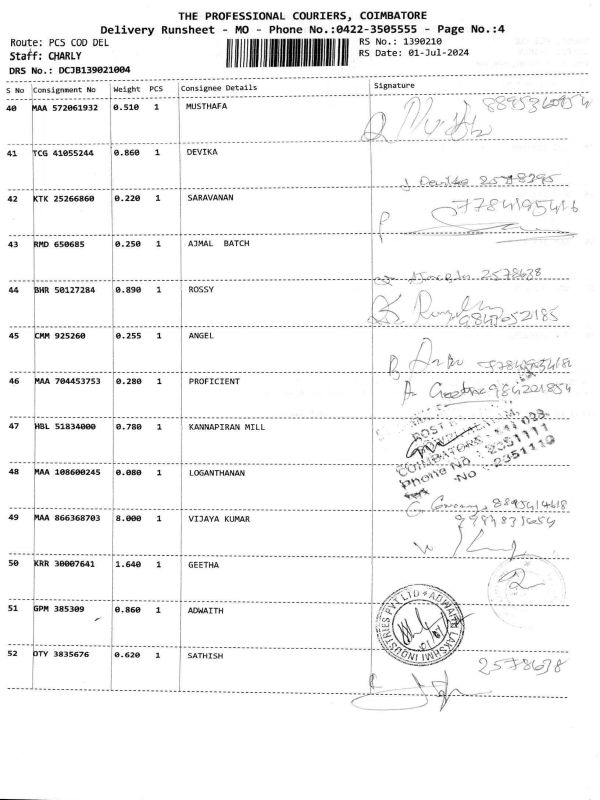 THE PROFESSIONAL COURIERS, COIMBATORE
Delivery Runsheet - MO - Phone No.:0422-3505555 - Page No.:4
Route: PCS COD DEL
RS No.: 1390210
Staff: CHARLY
RS Date: 01-Jul-2024
DRS No.: DCJB139021004
S No Consignment No Weight PCS Consignee Details Signature
40 MAA 572061932 0.510 1 MUSTHAFA
41 TCG 41055244 0.860 1 DEVIKA
Devika 2578395
42 KTK 25266860 0.220 1 SARAVANAN
7784195416
43 RMD 650685 0.250 1 AJMAL BATCH
2578638
44 BHR 50127284 0.890 1 ROSSY
45 CMM 925260 0.255 1 ANGEL
46 MAA 704453753 0.280 1 PROFICIENT
47 HBL 51834000 0.780 1 KANNAPIRAN MILL
COIMBATORE
Phone No : 2351111
No : 2351110
48 MAA 108600245 0.080 1 LOGANTHANAN
49 MAA 866368703 8.000 1 VIJAYA KUMAR
50 KRR 30007641 1.640 1 GEETHA
51 GPM 385309 0.860 1 ADWAITH
ADWAITH LAKSHMI INDUSTRIES PVT LTD
52 OTY 3835676 0.620 1 SATHISH
2578638